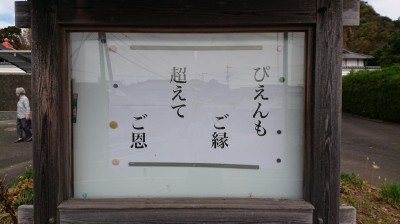 ぴえんも
ご縁
超えて
ご恩